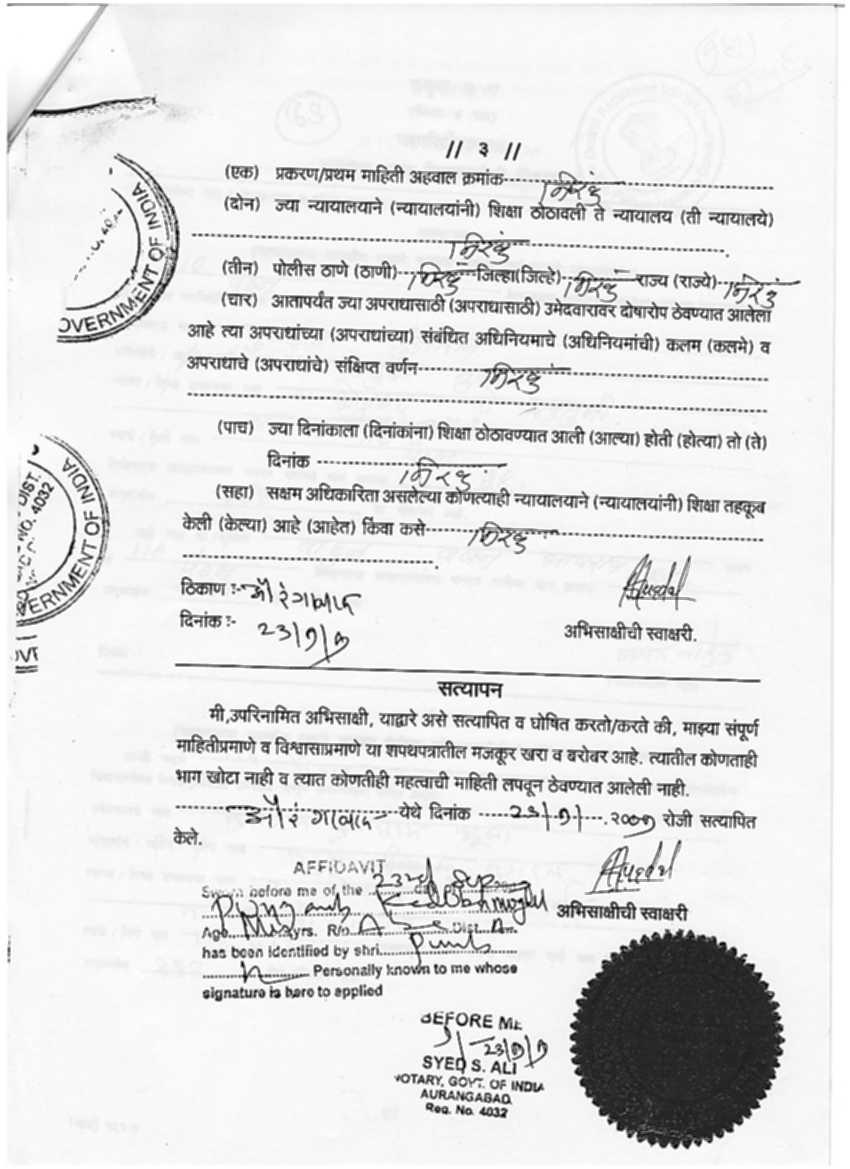 // ३ //
(एक) प्रकरण/प्रथम माहिती अहवाल क्रमांक निरंक
(दोन) ज्या न्यायालयाने (न्यायालयांनी) शिक्षा ठोठावली ते न्यायालय (ती न्यायालये)
निरंक
(तीन) पोलीस ठाणे (ठाणी) निरंक जिल्हा(जिल्हे) निरंक राज्य (राज्ये) निरंक
(चार) आतापर्यंत ज्या अपराधासाठी (अपराधासाठी) उमेदवारावर दोषारोप ठेवण्यात आलेला
आहे त्या अपराधांच्या (अपराधांच्या) संबंधित अधिनियमाचे (अधिनियमांची) कलम (कलमे) व
अपराधाचे (अपराधांचे) संक्षिप्त वर्णन निरंक
(पाच) ज्या दिनांकाला (दिनांकांना) शिक्षा ठोठावण्यात आली (आल्या) होती (होत्या) तो (ते)
दिनांक निरंक
(सहा) सक्षम अधिकारिता असलेल्या कोणत्याही न्यायालयाने (न्यायालयांनी) शिक्षा तहकूब
केली (केल्या) आहे (आहेत) किंवा कसे निरंक
ठिकाण :- औरंगाबाद
दिनांक :-
अभिसाक्षीची स्वाक्षरी.
सत्यापन
मी,उपरिनामित अभिसाक्षी, याद्वारे असे सत्यापित व घोषित करतो/करते की, माझ्या संपूर्ण
माहितीप्रमाणे व विश्वासाप्रमाणे या शपथपत्रातील मजकूर खरा व बरोबर आहे. त्यातील कोणताही
भाग खोटा नाही व त्यात कोणतीही महत्वाची माहिती लपवून ठेवण्यात आलेली नाही.
औरंगाबाद येथे दिनांक रोजी सत्यापित
केले.
AFFIDAVIT
Sworn before me of the 23rd day of
Age yrs. R/o Dist.
अभिसाक्षीची स्वाक्षरी
has been identified by shri
Personally known to me whose
signature is here to applied
BEFORE ME
SYED S. ALI
NOTARY, GOVT. OF INDIA
AURANGABAD.
Reg. No. 4032
GOVERNMENT OF INDIA
GOVERNMENT OF INDIA
DIST.
NO. 4032